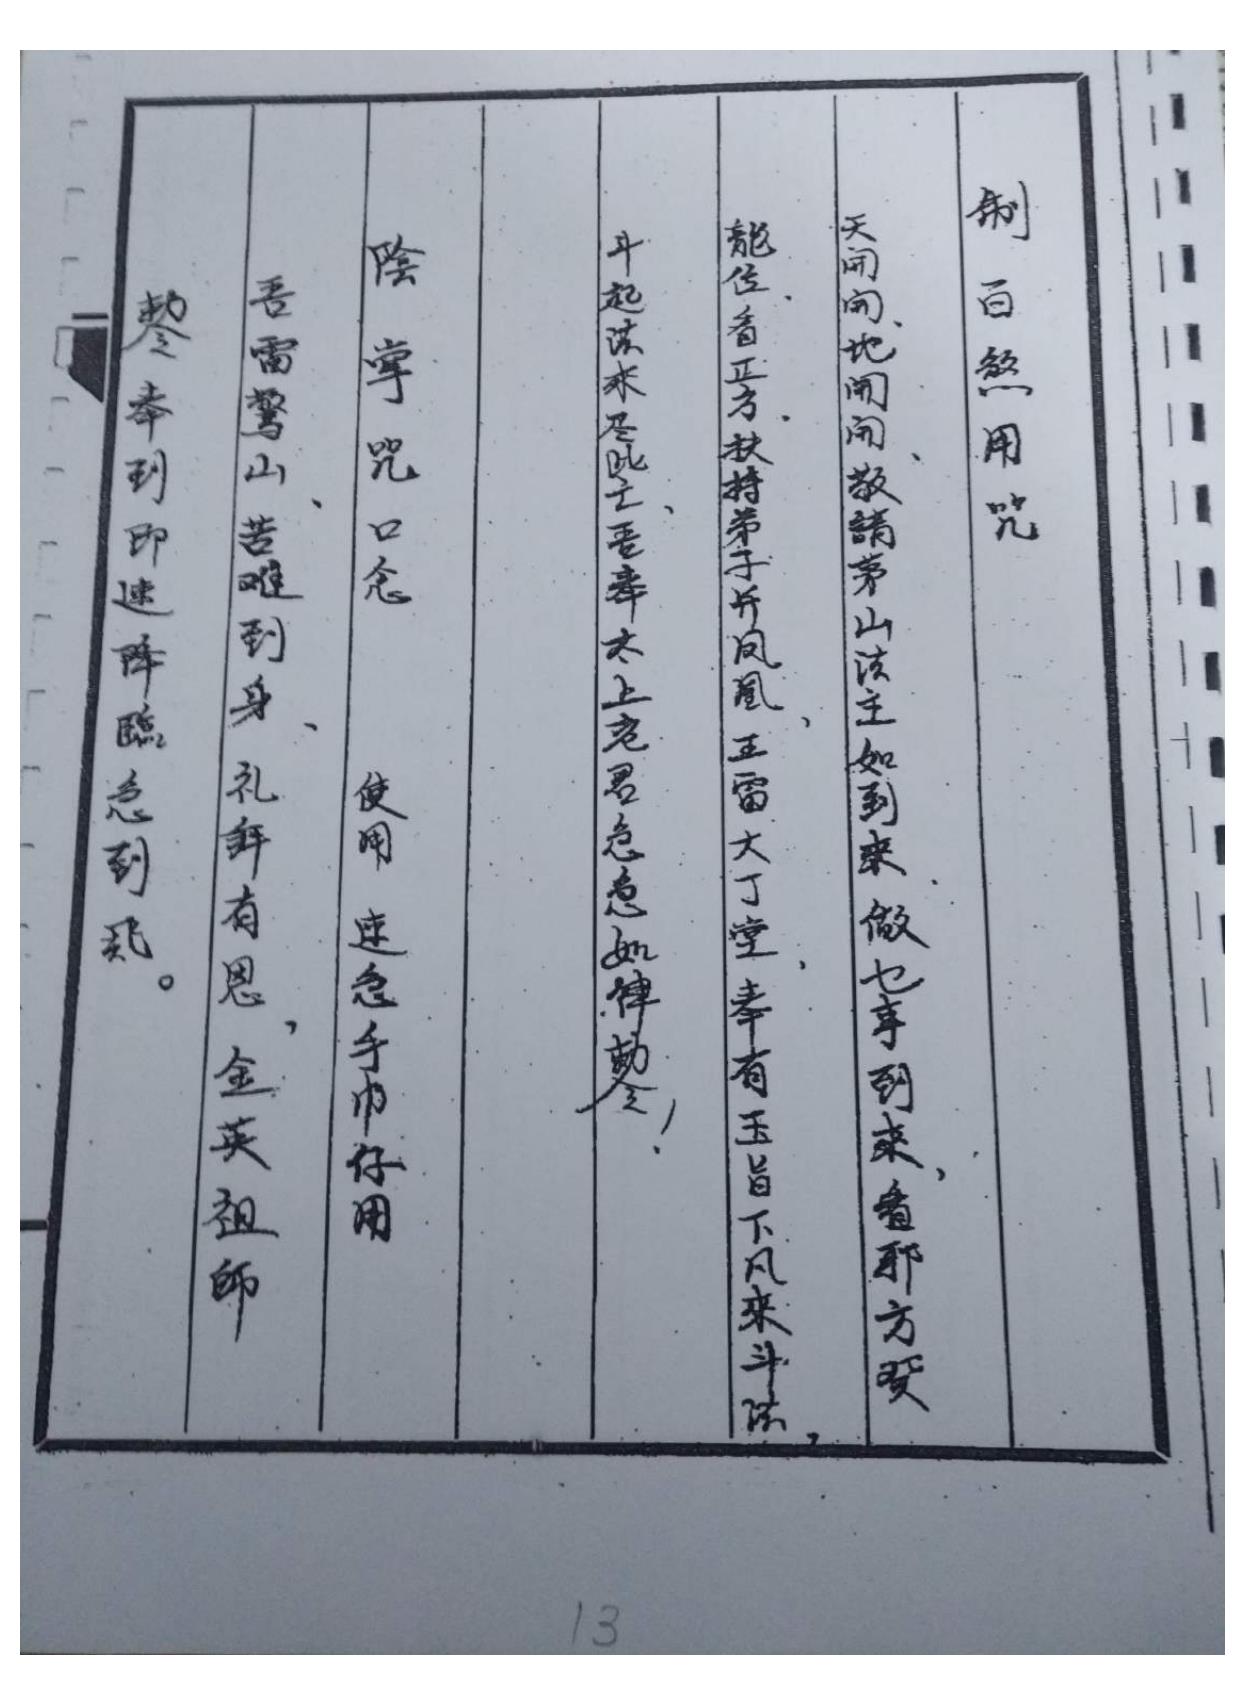 制百煞用咒
天開開、地開開、敬請茅山法主如到來、做乜事到來、看那方
龍位、看正方、扶持弟子斤凤凰、正雷大丁堂、奉有玉旨下凡來斗法、
斗起法來尽此亡、吾奉太上老君急急如律勅令！
陰掌咒口念 使用 速急手巾仔用
吾雷驚山、苦难到身、礼拜有恩、金英祖師
勅令奉到即速降臨急到起。
13